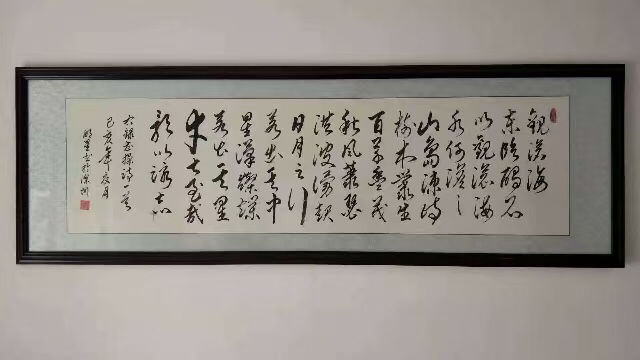 觀滄海
東臨碣石
以觀滄海
水何澹々
山島竦峙
樹木叢生
百草豐茂
秋風蕭瑟
洪波湧起
日月之行
若出其中
星漢燦爛
若出其里
幸甚至哉
歌以詠志
右錄曹操詩一首
己亥年辰月
書於深圳